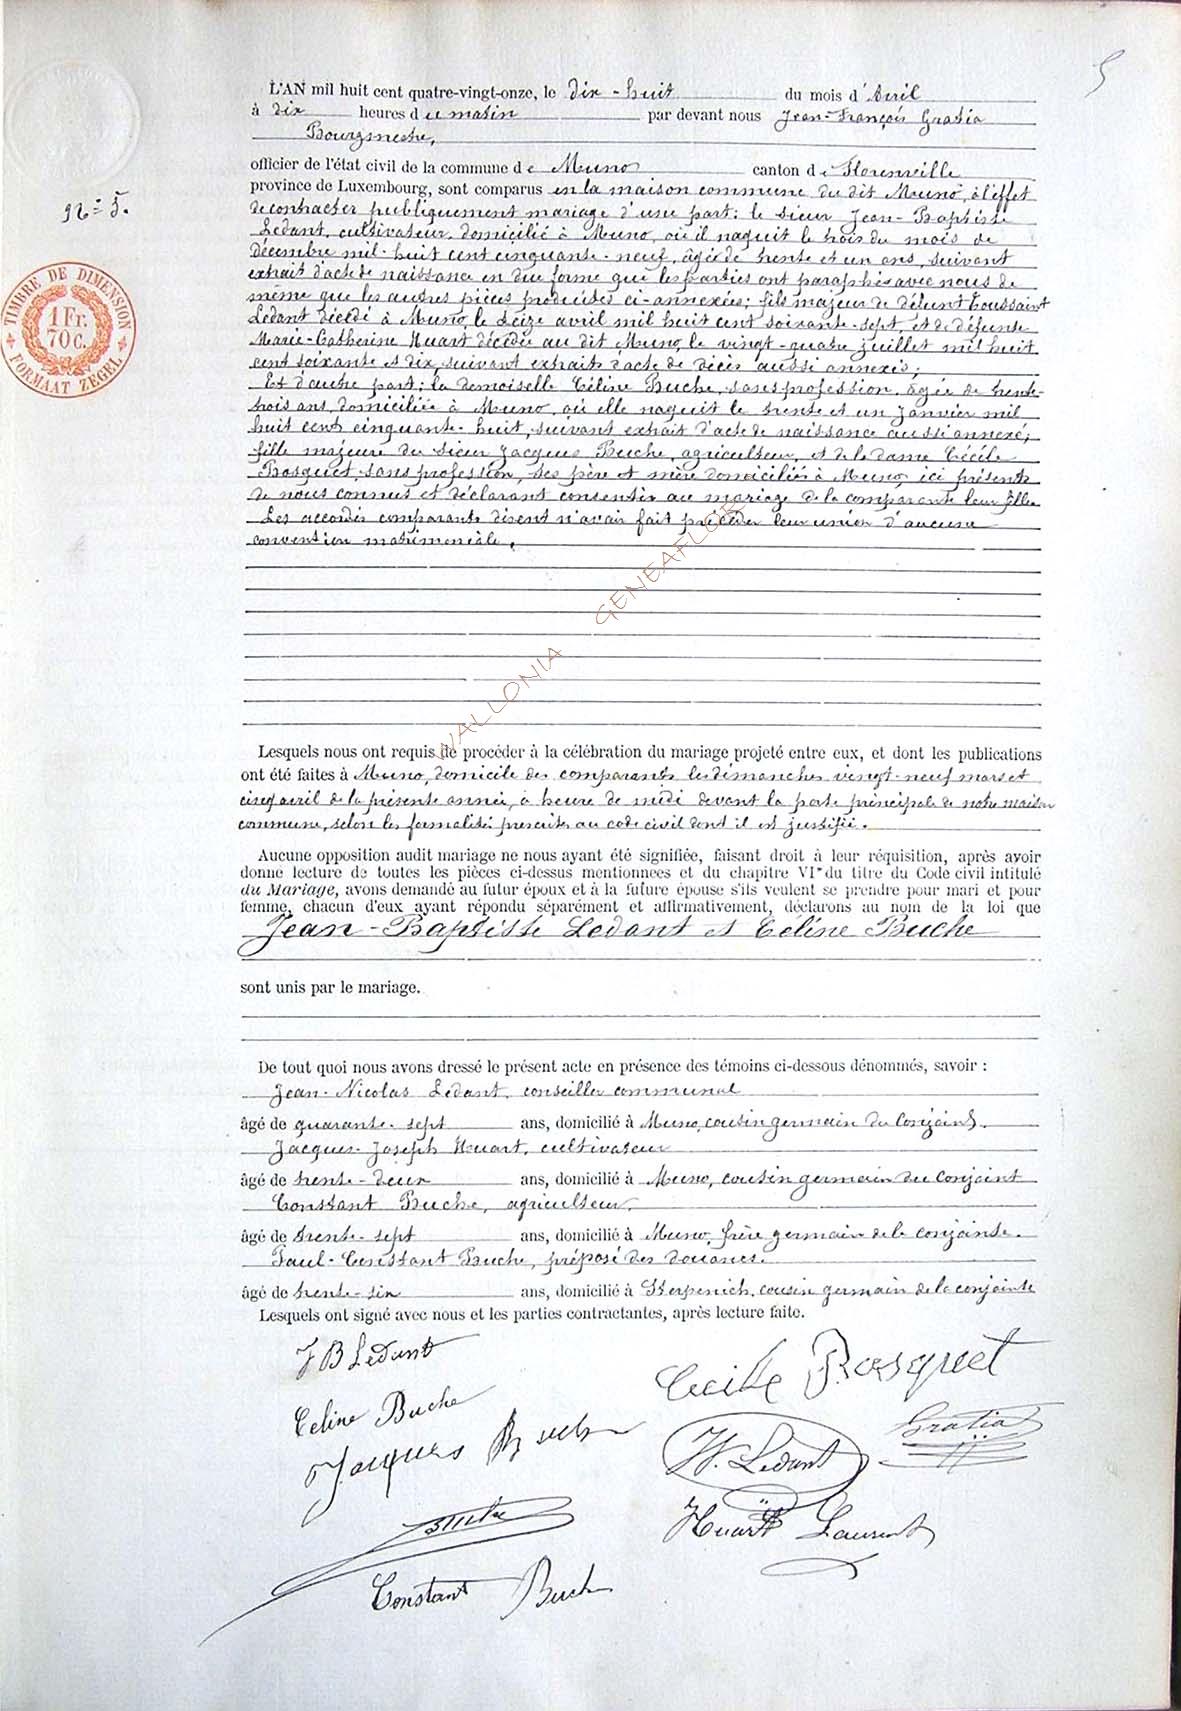 5
L'AN mil huit cent quatre-vingt-onze, le dix-huit du mois d'Avril
à dix heures du matin par devant nous Jean-François Gratia
Bourgmestre,
officier de l'état civil de la commune de Muno canton de Florenville
province de Luxembourg, sont comparus en la maison commune du dit Muno, à l'effet
de contracter publiquement mariage d'une part: le sieur Jean-Baptiste
Ledant, cultivateur, domicilié à Muno, où il naquit le trois du mois de
décembre mil-huit cent cinquante-neuf, âgée de trente et un ans, suivant
extrait d'acte de naissance en due forme que les parties ont paraphés avec nous de
même que les autres pièces produites ci-annexées; fils majeur de défunt Toussaint
Ledant décédé à Muno, le seize avril mil huit cent soixante-sept, et de défunte
Marie-Catherine Huart décédée au dit Muno, le vingt-quatre juillet mil huit
cent soixante et dix, suivant extraits d'acte de décès aussi annexés;
Et d'autre part: la demoiselle Céline Buche, sans profession, âgée de trente-
trois ans, domiciliée à Muno, où elle naquit le trente et un Janvier mil
huit cent cinquante-huit, suivant extrait d'acte de naissance aussi annexé,
fille majeure du sieur Jacques Buche, agriculteur, et de la dame Cécile
Rosquet, sans profession, ses père et mère domiciliés à Muno, ici présents
de nous connus et déclarant consentir au mariage de la comparante leur fille
Les accordés comparants disent n'avoir fait précéder leur union d'aucune
convention matrimoniale.
Nº 5.
TIMBRE DE DIMENSION
1 Fr.
70 C.
FORMAAT ZEGEL
WALLONIA GENEAFLOR
Lesquels nous ont requis de procéder à la célébration du mariage projeté entre eux, et dont les publications
ont été faites à Muno, domicile des comparants les dimanches vingt-neuf mars et
cinq avril de la présente année, à heure de midi devant la porte principale de notre maison
commune, selon les formalités prescrites au code civil dont il est justifié.
Aucune opposition audit mariage ne nous ayant été signifiée, faisant droit à leur réquisition, après avoir
donné lecture de toutes les pièces ci-dessus mentionnées et du chapitre VI du titre du Code civil intitulé
du Mariage, avons demandé au futur époux et à la future épouse s'ils veulent se prendre pour mari et pour
femme, chacun d'eux ayant répondu séparément et affirmativement, déclarons au nom de la loi que
Jean-Baptiste Ledant et Céline Buche
sont unis par le mariage.
De tout quoi nous avons dressé le présent acte en présence des témoins ci-dessous dénommés, savoir :
Jean-Nicolas Ledant, conseiller communal
âgé de quarante-sept ans, domicilié à Muno, cousin germain du conjoint.
Jacques-Joseph Huart, cultivateur
âgé de trente-deux ans, domicilié à Muno, cousin germain du conjoint
Constant Buche, agriculteur,
âgé de trente-sept ans, domicilié à Muno, frère germain de la conjointe.
Paul-Constant Buche, préposé des douanes.
âgé de trente-six ans, domicilié à Sterpenich, cousin germain de la conjointe
Lesquels ont signé avec nous et les parties contractantes, après lecture faite.
J B Ledant
Cecile Rosquet
Celine Buche
Gratia
Jacques Buche
N. Ledant
Huart Laurent
Constant Buche